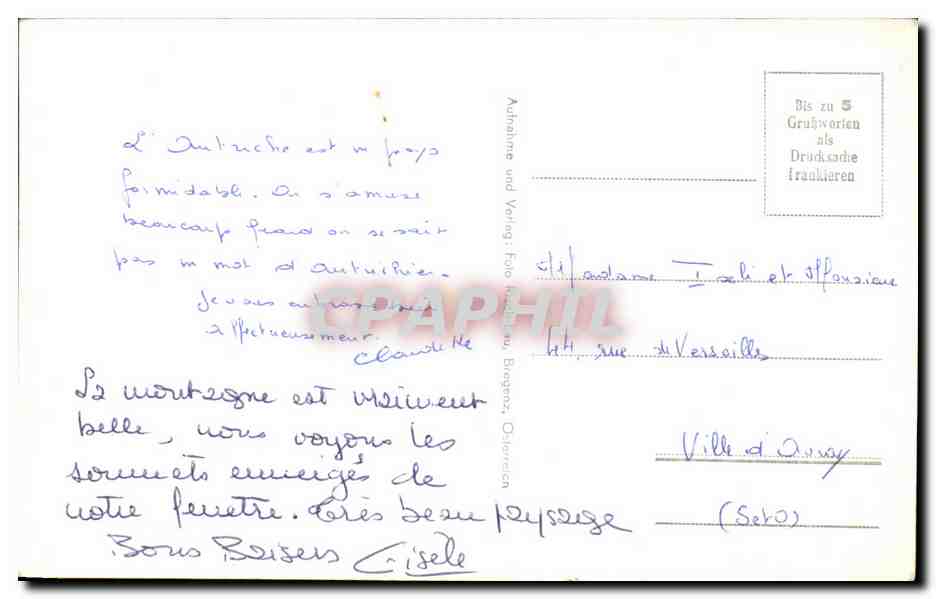 L'Autriche est un pays
formidable. On s'amuse
beaucoup quand on ne sait
pas un mot d'autrichien.
Je vous embrasse
affectueusement.
Claudette
La montagne est vraiment
belle, nous voyons les
sommets enneigés de
notre fenetre. Très beau paysage
Bons Baisers Gisèle
Aufnahme und Verlag: Foto Bregenz, Österreich
Bis zu 5
Grußworten
als
Drucksache
frankieren
Madame et Monsieur
44, rue de Versailles
Ville d'Avray
(SetO)
CPAPHIL